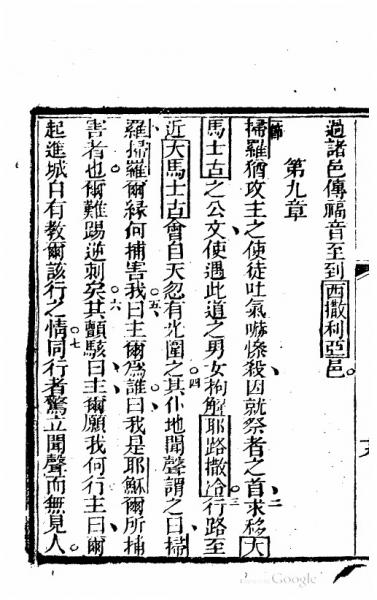 過諸邑傳福音至到西撒利亞邑
第九章
一節 掃羅猶攻主之使徒吐氣嚇慘殺因就祭者之首求移大
馬士古之公文使遇此道之男女拘解耶路撒冷行路至
近大馬士古會自天忽有光圍之其仆地聞聲謂之曰掃
羅掃羅爾緣何捕害我曰主爾為誰曰我是耶穌爾所捕
害者也爾難踢逆刺矣其顫駭曰主爾願我何行主曰爾
起進城自有教爾該行之情同行者驚立聞聲而無見人
二
三
四
五
六
七
Google